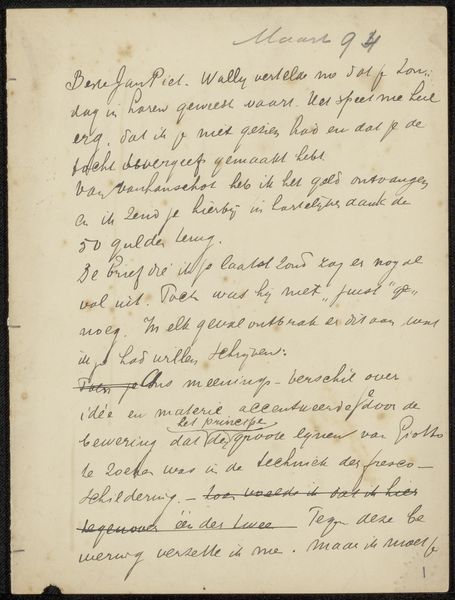 Maart 94
Beste Jan Piet. Wally vertelde me dat je Zon-
dag in Laren geweest waart. Het speet me heel
erg, dat ik je niet gezien had en dat je de
tocht vergeefs gemaakt hebt.
Van Vanhenschot heb ik het geld ontvangen
en ik zend je hierbij in hartelijke dank de
50 gulden terug.
De brief die ik je laatst zond zag er nog al
vol uit. Toch was hij niet „juist" ge-
noeg. In elk geval ontbrak er dit aan wat
ik je had willen schrijven:
Toen je Ons meenings-verschil over
idée en materie accentueerde je door de
bewering dat het principe der groote lijnen van Giotto
te zoeken was in de techniek der fresco-
schildering. - toen voelde ik dat ik hier
tegenover één der twee Tegen deze be
wering verzette ik me. Maar ik moest
1